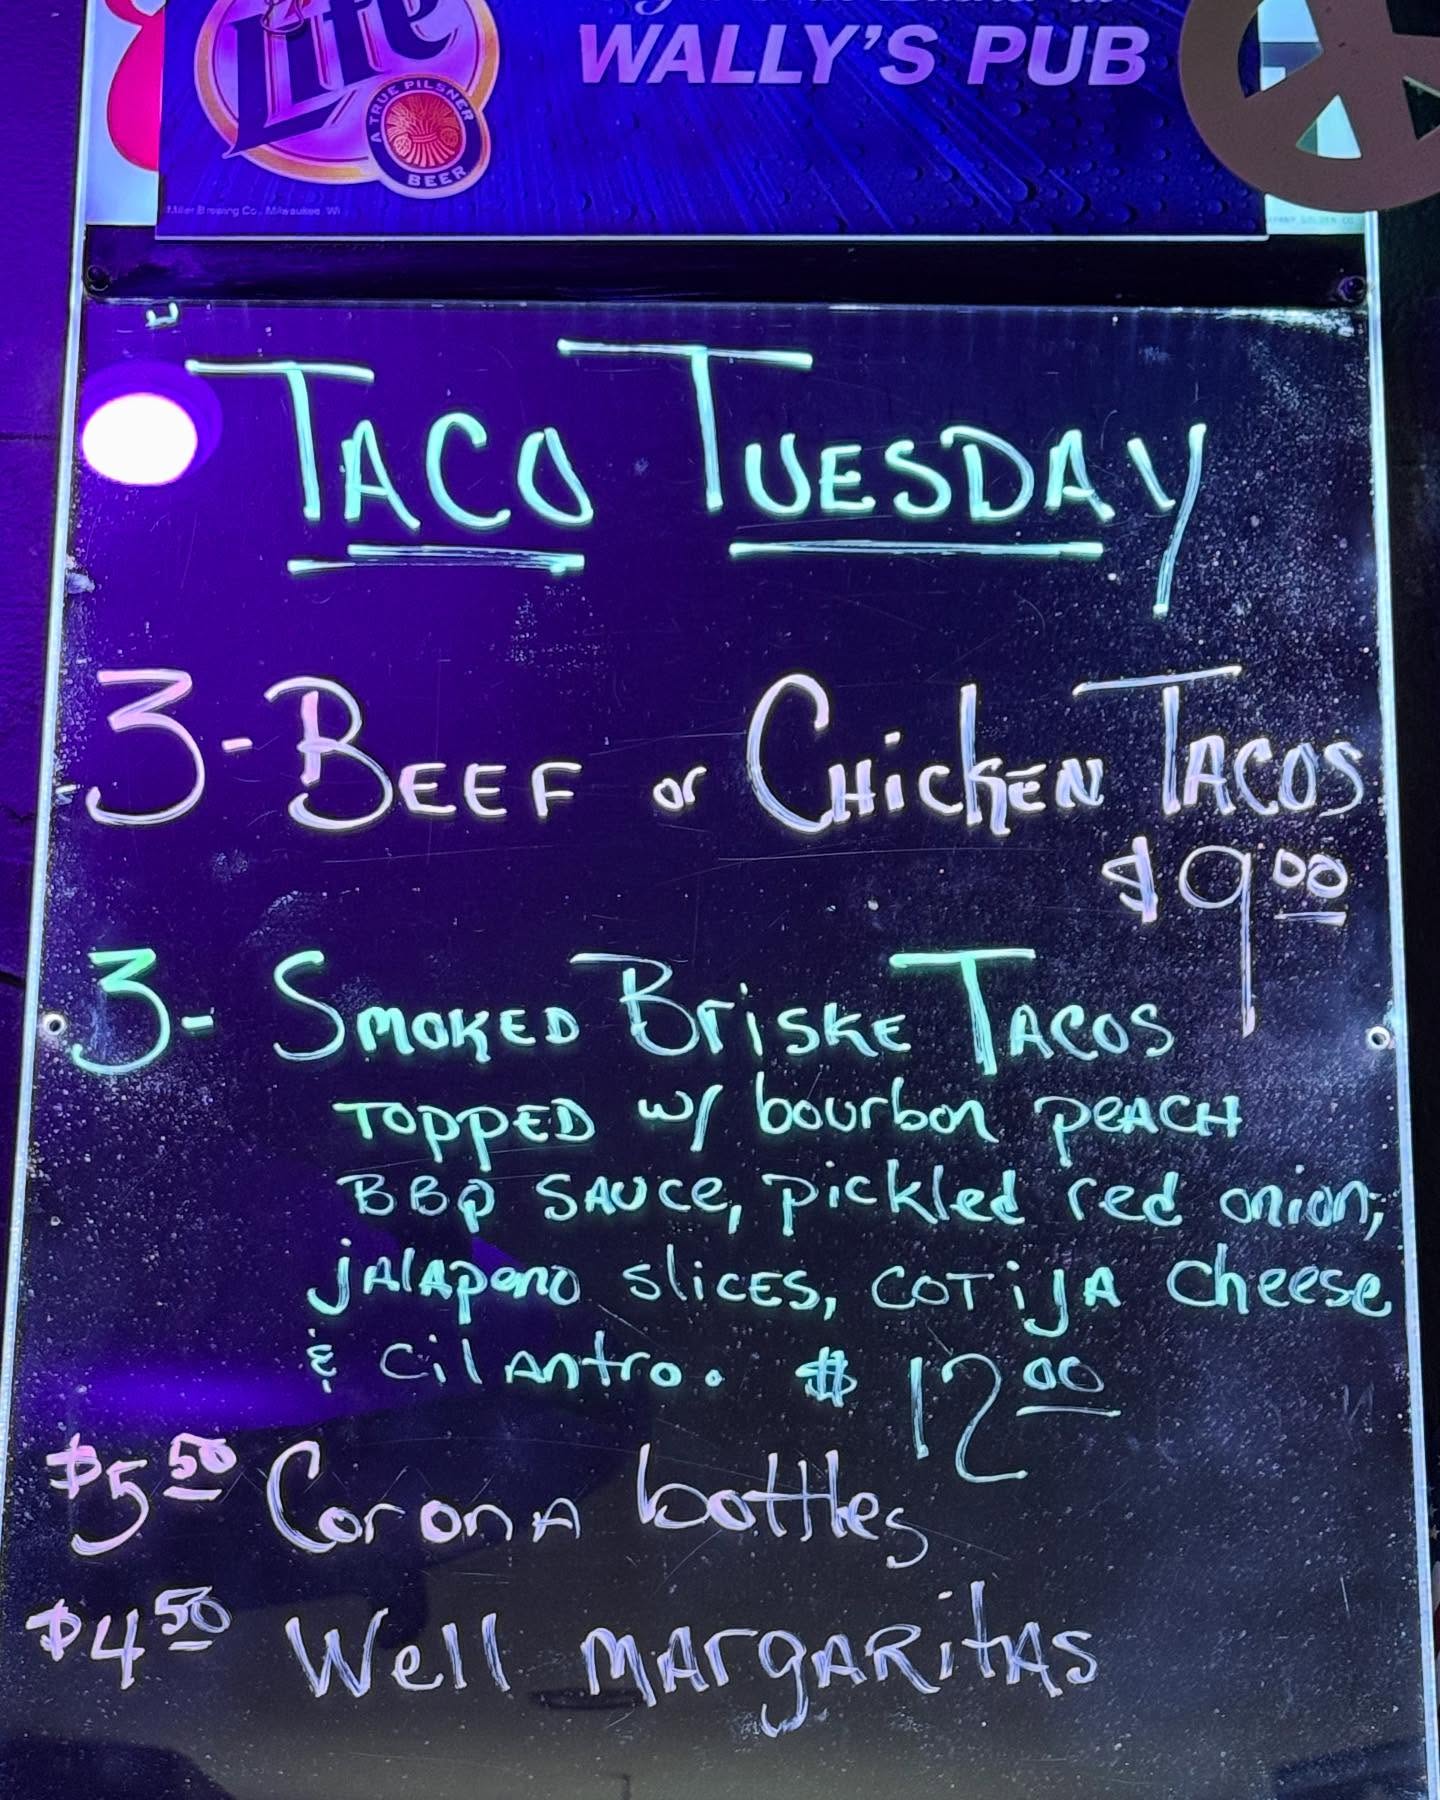 Lite
A TRUE PILSNER
BEER
WALLY'S PUB
Miller Brewing Co., Milwaukee, WI
TACO TUESDAY
3- BEEF or CHicKEN TACOS
$9.00
3- SMOKED BrisKE TACOS
TOPPED w/ bourbon PEACH
BBQ SAUCE, pickled red onion,
jAlApeno slices, COTijA Cheese
& CilAntro. $12.00
$5.50 CoronA bottles
$4.50 Well MARgARitAS